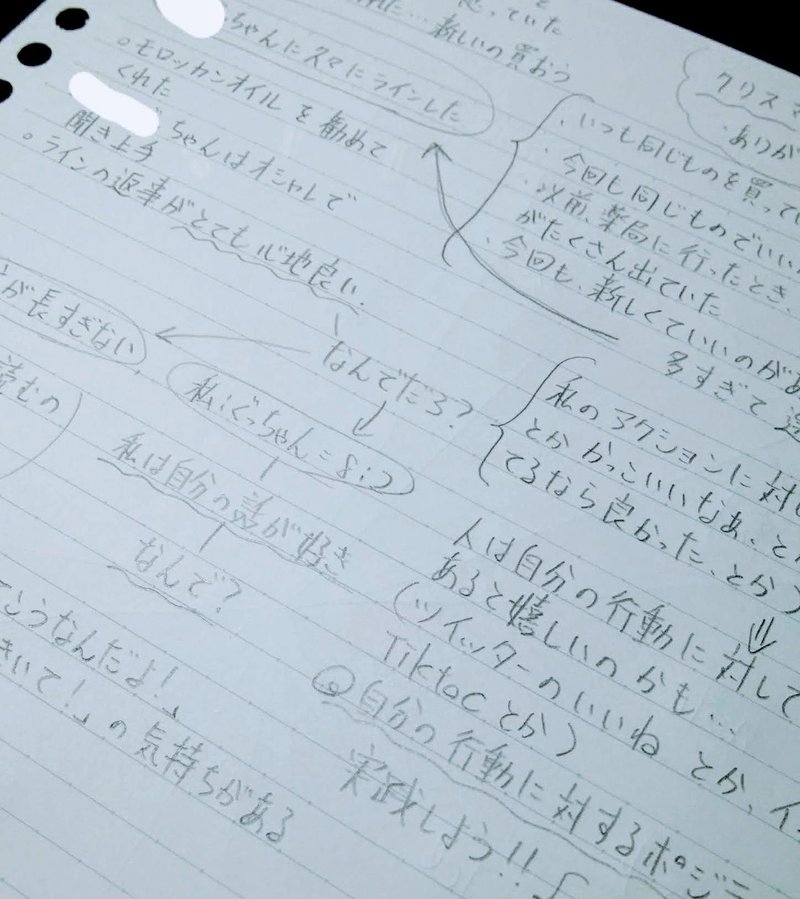 思っていた
…新しいの買おう
ちゃんに久々にラインした
○モロッカンオイルを勧めて
くれた
ちゃんはオシャレで
聞き上手
○ラインの返事がとても心地良い。
クリスマ
ありが
・いつも同じものを買ってい
・今回も同じものでいい
・以前、薬局に行ったとき、
がたくさん出ていた
・今回も、新しくていいのがあ
多すぎて
なんでだろ?
が長すぎない
読むの
私:ぐっちゃん=8:2
私は自分の話が好き
なんで?
こうなんだよ!」
きいて!」の気持ちがある
私のアクションに対し
とかかっこいいなあ、とか
てるなら良かった、とか)
人は自分の行動に対して
あると嬉しいのかも…
(ツイッターのいいねとか、イ
Tiktocとか)
◎自分の行動に対するポジ
実践しよう!!